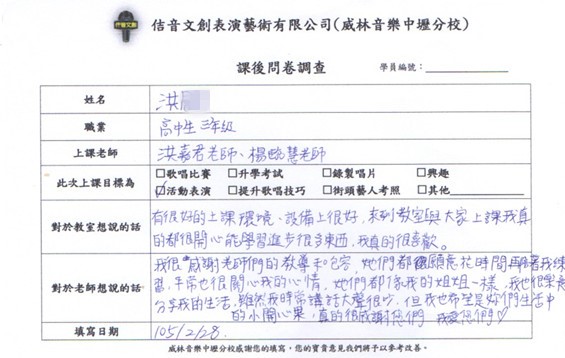 佶音文創
佶音文創表演藝術有限公司(威林音樂中壢分校)
課後問卷調查
學員編號：
姓名 洪
職業 高中生 三年級
上課老師 洪嘉君老師、楊皖慧老師
此次上課目標為 □歌唱比賽 □升學考試 □錄製唱片 □興趣
☑活動表演 □提升歌唱技巧 □街頭藝人考照 □其他
對於教室想說的話 有很好的上課環境、設備上很好，來到教室與大家上課我真
的都很開心能學習進步很多東西，我真的很喜歡。
對於老師想說的話 我很感謝老師們的教導和包容，她們都很願意花時間陪著我練
習，平常也很關心我的心情，她們都像我的姐姐一樣，我也很樂意
分享我的生活，雖然我時常講話大聲很吵，但我也希望是妳們生活中
的小開心果，真的很感謝您們，我愛您們♡
填寫日期 105/2/28.
威林音樂中壢分校感謝您的填寫，您的寶貴意見我們將予以參考改善。